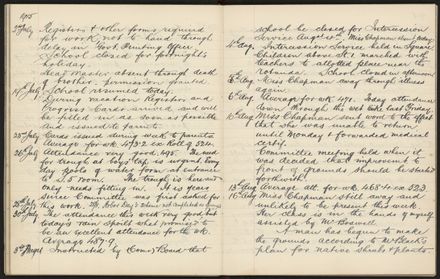 1905
3rd July Registers & other forms required
for work not to hand through
delay in Govt Printing Office.
School closed for fortnight's
holiday.
Head Master absent through death
of brother. Permission granted
17th July School resumed today.
During vacation Register and
Progress Cards arrived and
will be filled in as soon as possible
and issued to parents.
25th July Cards issued during week to parents
Average for wk 479.2 ex Roll of 521
26th July Attendance very good 495. The want
for trough at boys' tap is urgent. Every
day pools of water form at entrance
to S.5 room. The trough is here and
only needs fitting in. It is years
since Committee was first asked for
this work.
30th July The attendance this week very good but
today's rain spoilt what promised to
be an excellent attendance for the wk.
Average 487.9
Instructed by Com. Board that
school be closed for Intercession
Service Aug. Miss Chapman absent today.
4th Aug Intercession Service held in Square
Children above S. marched with
teachers to allotted place near the
rotunda. School closed in afternoon
Miss Chapman away through illness
again.
6th Aug Average for wk 471. Today attendance
down through the wet till last Friday.
Miss Chapman sent word to the effect
that she was unable to return
until Monday & forwarded medical
certif.
Committee meeting held when it
was decided that improvement to
front of grounds should be started
forthwith.
13th Aug Average att. for wk. 465.4 ex 523
16th Aug Miss Chapman still away and
unlikely to be present this week
Her class is in the hands of myself
assisted by Mr Boswell
A man has begun to make
the grounds according to Mr Black's
plan for native shrubs & plants.